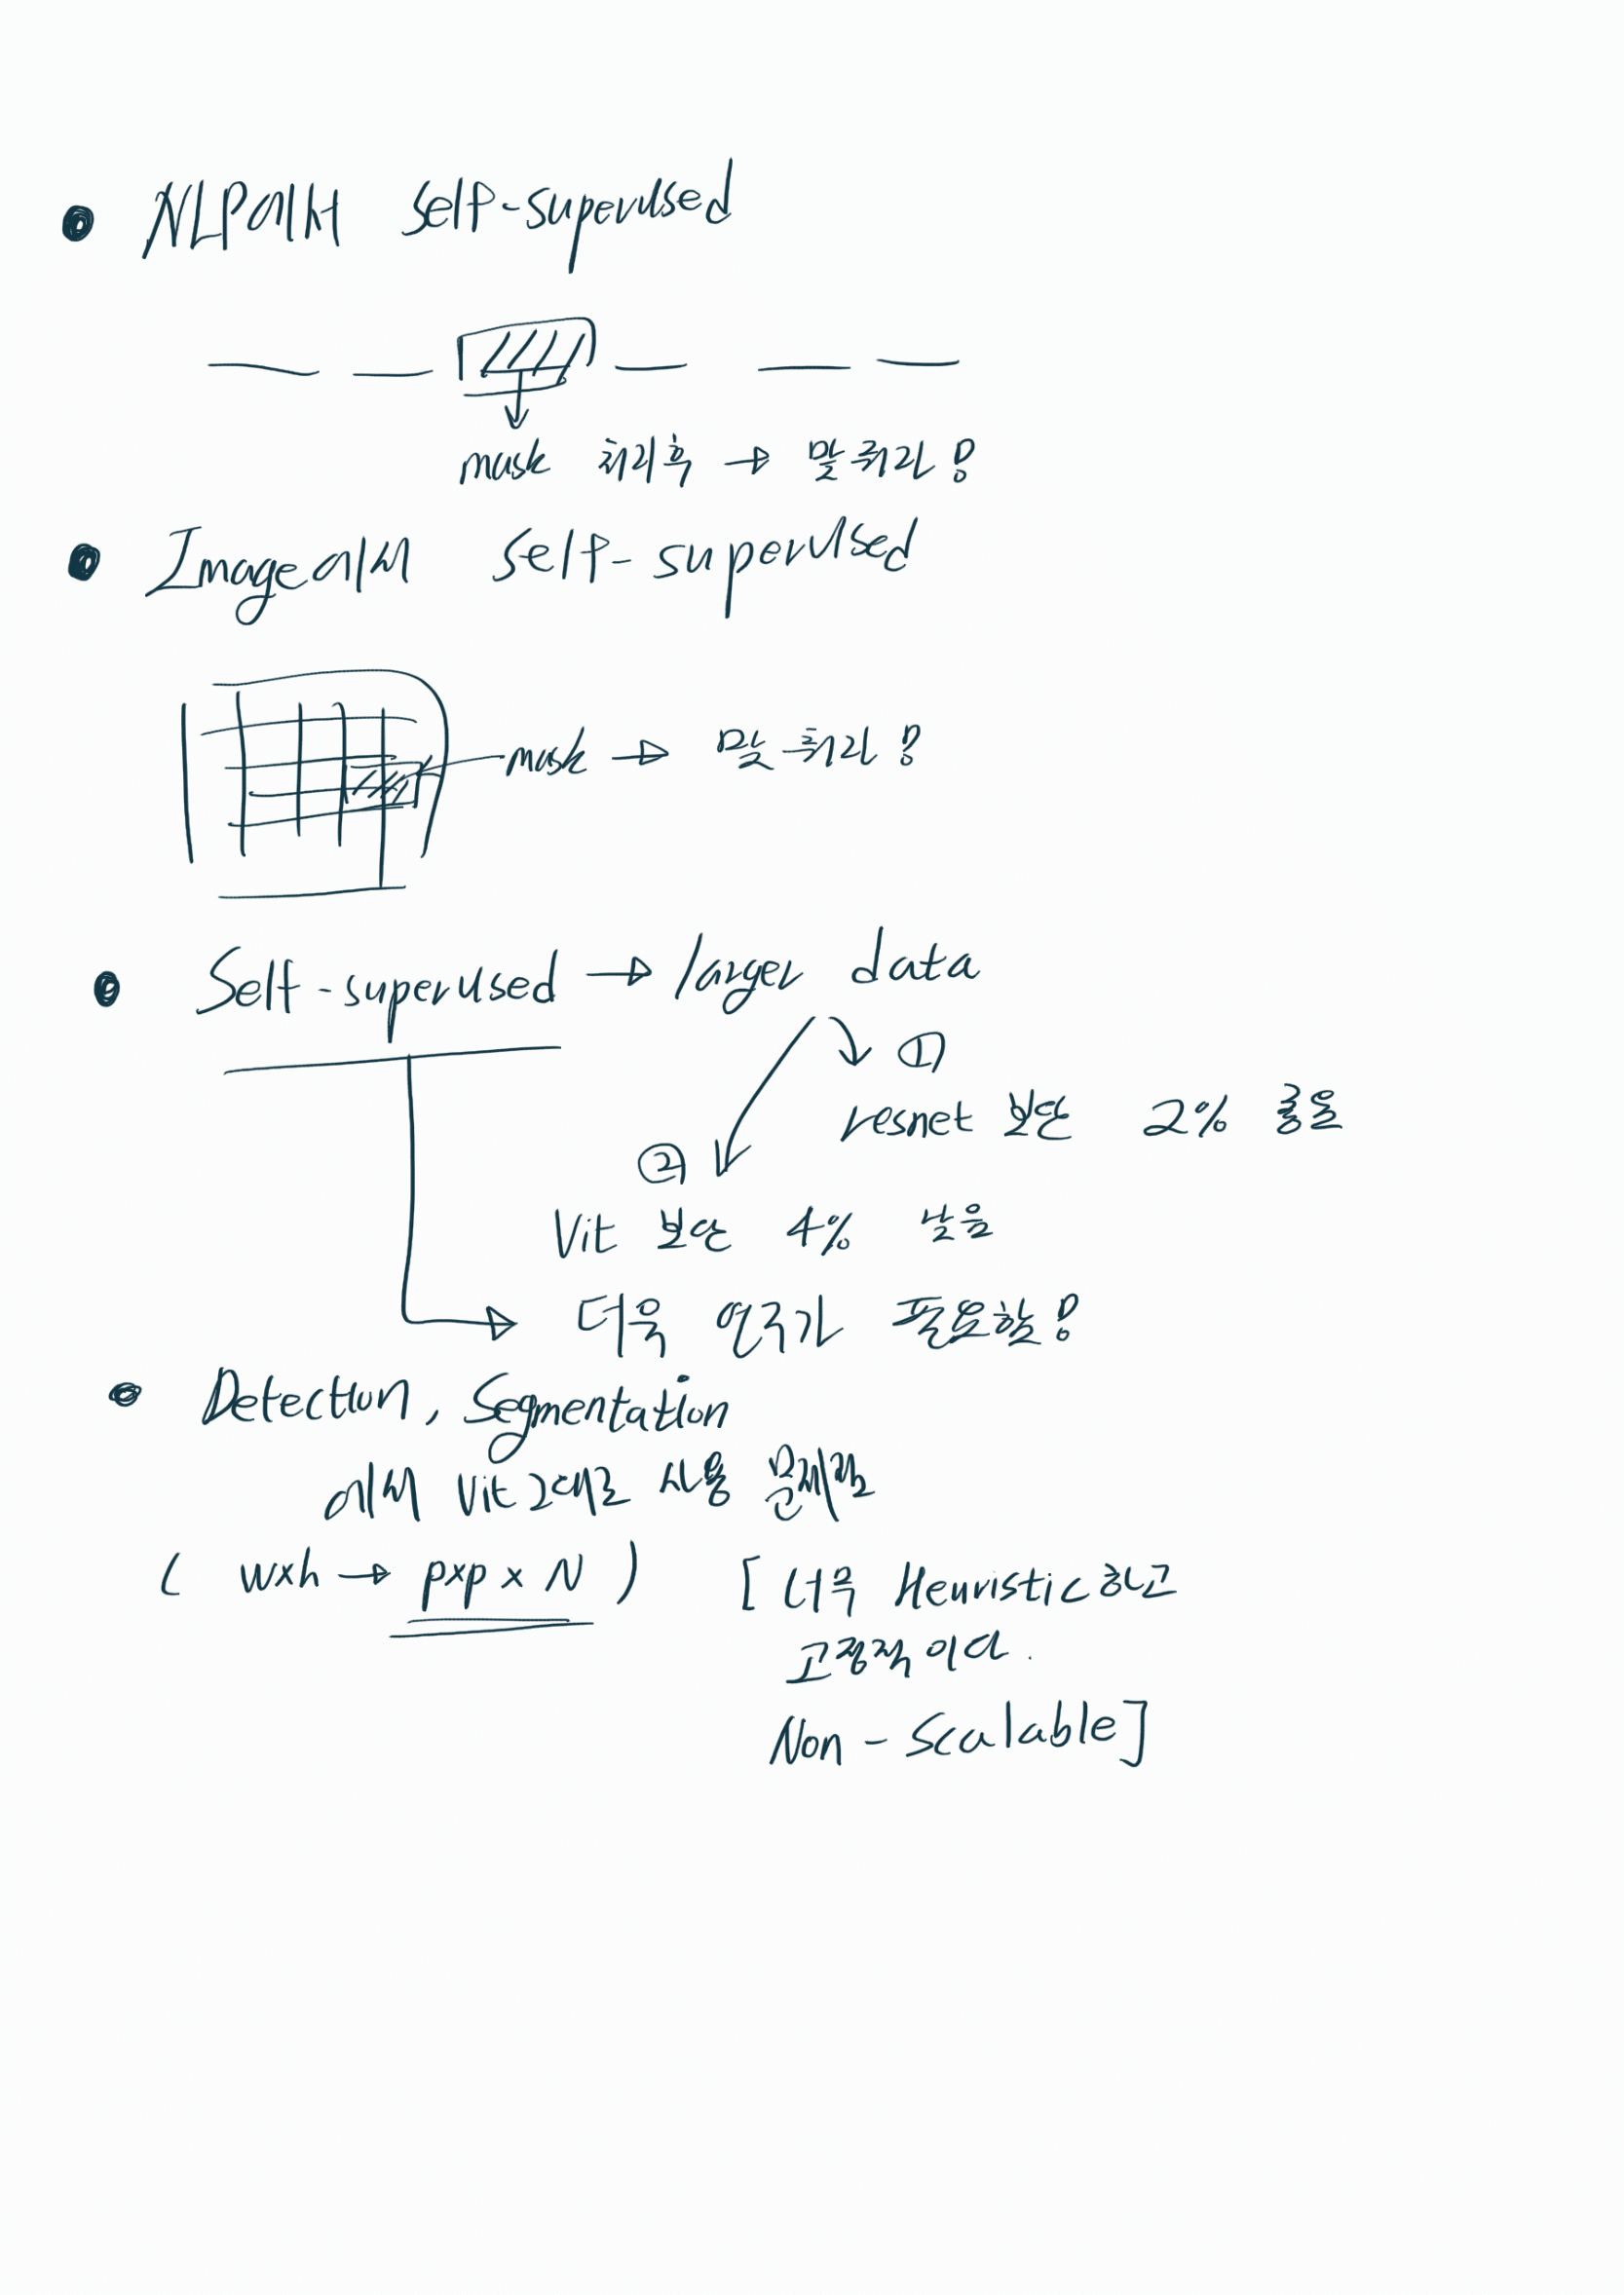 NLP에서 self-supervised
mask 처리후 → 맞춰라!
Image에서 self-supervised
mask → 맞춰라!
Self-supervised → larger data
①
resnet 보단 2% 좋음
②
Vit 보단 4% 낮음
더욱 연구가 필요함!
Detection, Segmentation
에서 Vit 그대로 사용 문제점
( wxh → pxp x N )
[ 너무 Heuristic하고
고정적이다.
Non-Scalable]